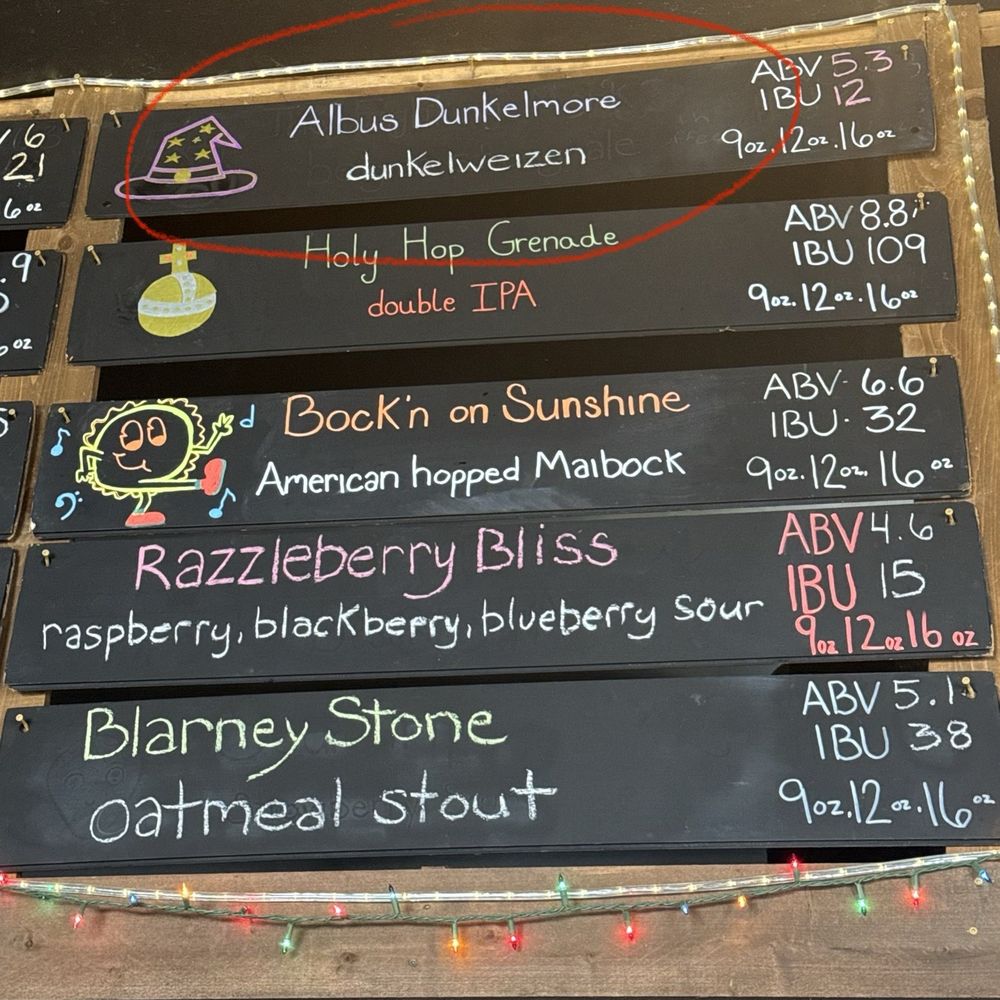 /.6
21
6 oz
Albus Dunkelmore
dunkelweizen
ABV 5.3
IBU 12
9oz.12oz.16oz
.9
oz
Holy Hop Grenade
double IPA
ABV 8.8
IBU 109
9oz.12oz.16oz
Bock'n on Sunshine
American hopped Maibock
ABV 6.6
IBU 32
9oz.12oz.16oz
Razzleberry Bliss
raspberry, blackberry, blueberry sour
ABV 4.6
IBU 15
9oz 12oz 16oz
Blarney Stone
oatmeal stout
ABV 5.1
IBU 38
9oz.12oz.16oz